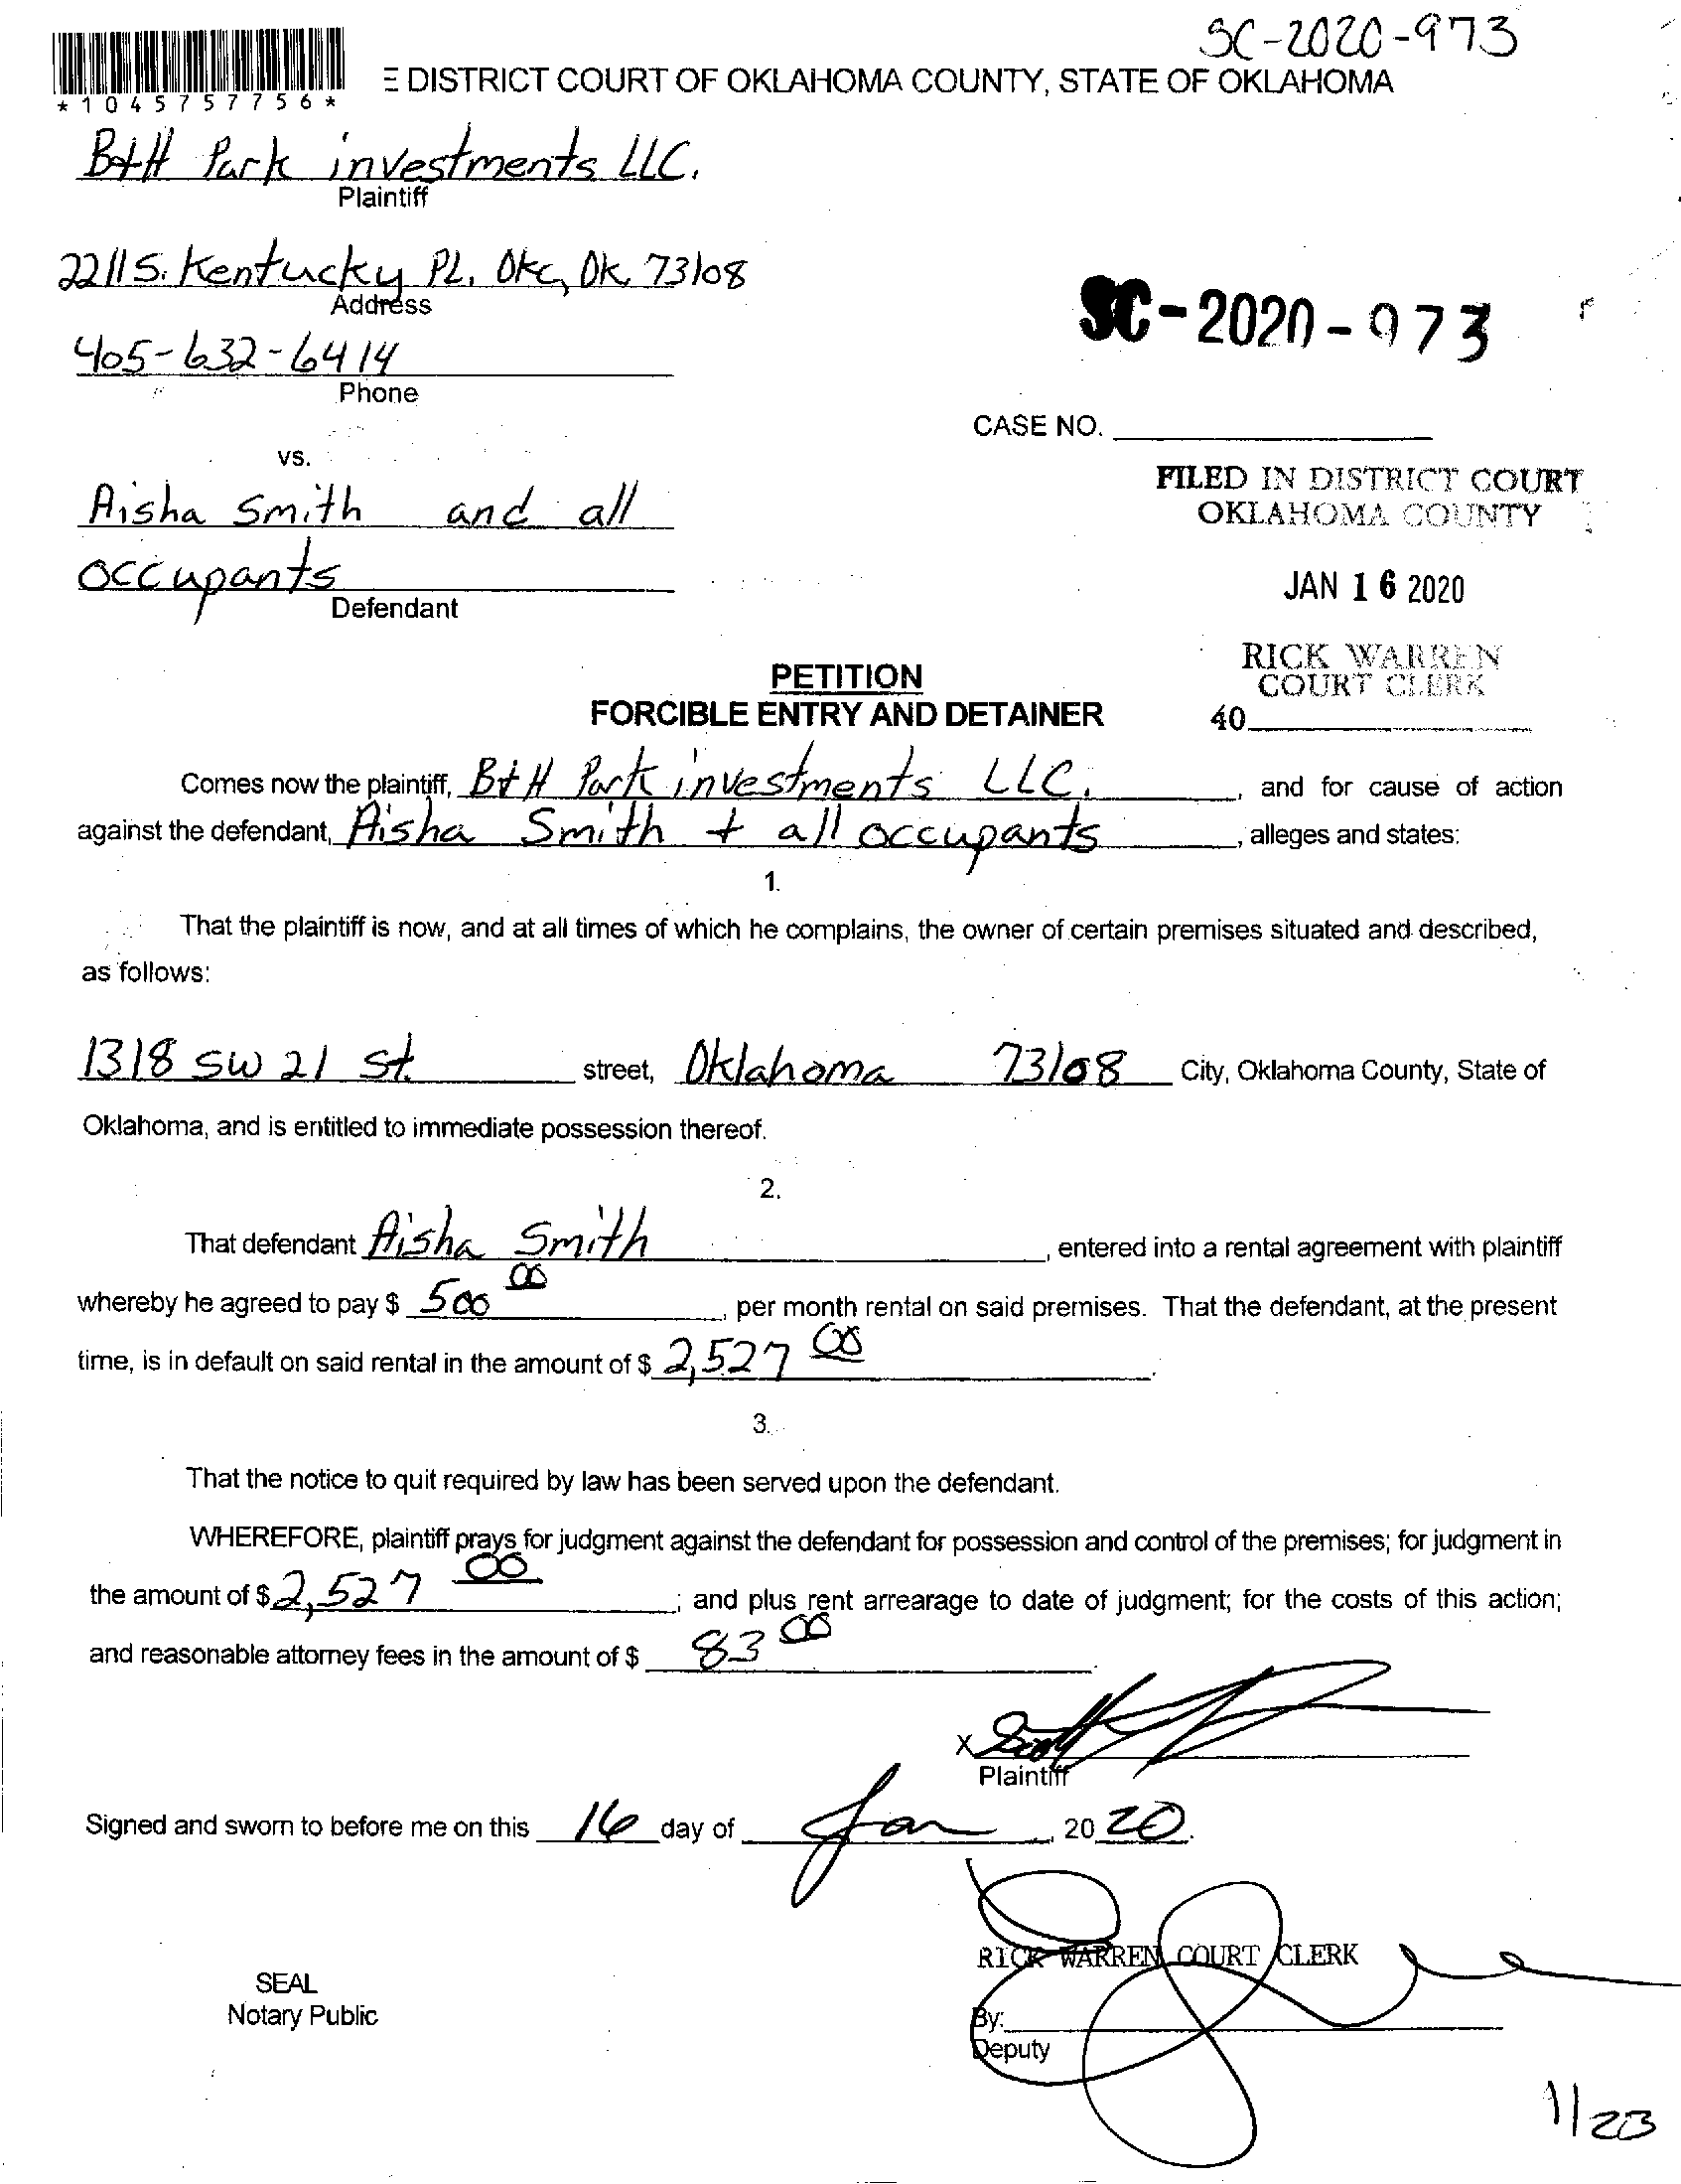 SC-2020-973
*1045757756*
E DISTRICT COURT OF OKLAHOMA COUNTY, STATE OF OKLAHOMA
B+H Park investments LLC.
Plaintiff
2211 S. Kentucky PL. OKC, OK. 73108
Address
405-632-6414
Phone
SC-2020-973
CASE NO.
vs.
Aisha Smith and all
occupants
Defendant
FILED IN DISTRICT COURT
OKLAHOMA COUNTY
JAN 16 2020
RICK WARREN
COURT CLERK
40
PETITION
FORCIBLE ENTRY AND DETAINER
Comes now the plaintiff, B+H Park investments LLC., and for cause of action
against the defendant, Aisha Smith + all occupants, alleges and states:
1.
That the plaintiff is now, and at all times of which he complains, the owner of certain premises situated and described,
as follows:
1318 SW 21 St. street, Oklahoma 73108 City, Oklahoma County, State of
Oklahoma, and is entitled to immediate possession thereof.
2.
That defendant Aisha Smith, entered into a rental agreement with plaintiff
whereby he agreed to pay $ 500 00, per month rental on said premises. That the defendant, at the present
time, is in default on said rental in the amount of $ 2,527 00.
3.
That the notice to quit required by law has been served upon the defendant.
WHEREFORE, plaintiff prays for judgment against the defendant for possession and control of the premises; for judgment in
the amount of $ 2,527 00; and plus rent arrearage to date of judgment; for the costs of this action;
and reasonable attorney fees in the amount of $ 83 00.
X
Plaintiff
Signed and sworn to before me on this 16 day of Jan, 20 20.
RICK WARREN COURT CLERK
SEAL
Notary Public
By:
Deputy
1/23